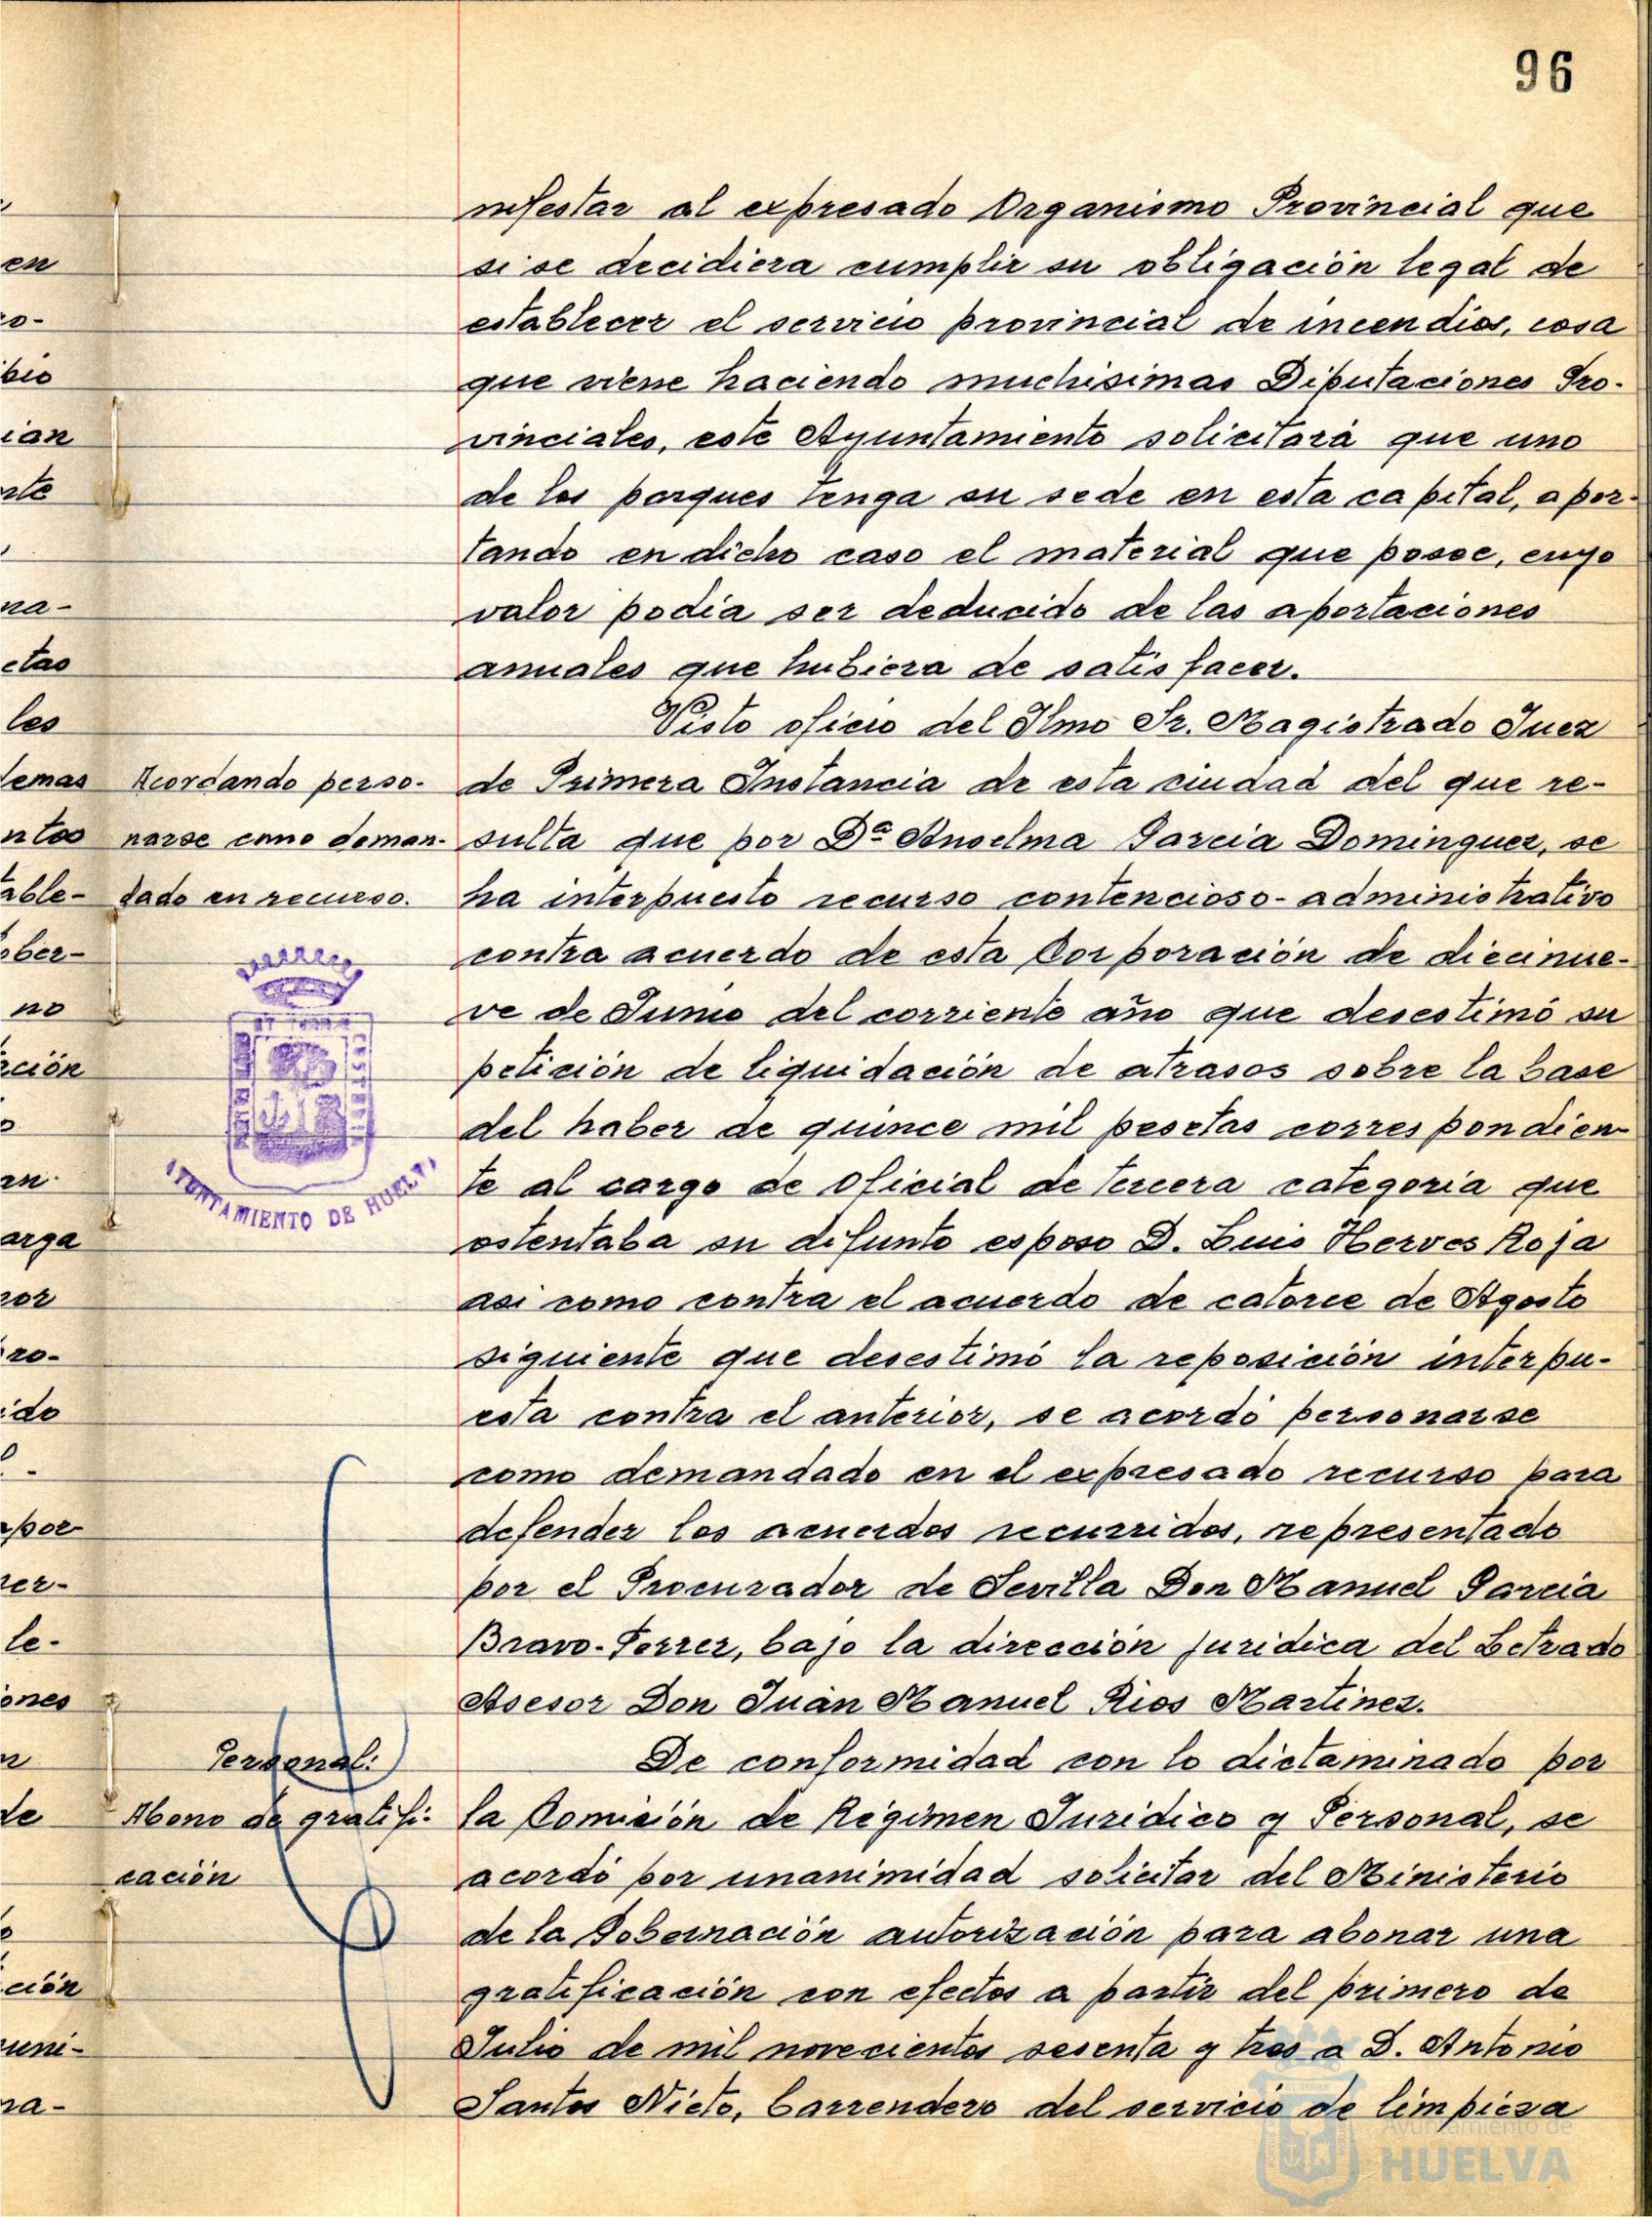 96
nifestar al expresado Organismo Provincial que
si se decidiera cumplir su obligación legal de
establecer el servicio provincial de incendios, cosa
que viene haciendo muchisimas Diputaciones Pro-
vinciales, este Ayuntamiento solicitará que uno
de los parques tenga su sede en esta capital, apor-
tando en dicho caso el material que posee, cuyo
valor podia ser deducido de las aportaciones
anuales que hubiera de satisfacer.
Visto oficio del Ilmo Sr. Magistrado Juez
Acordando perso-
narse como deman-
dado en recurso.
de Primera Instancia de esta ciudad del que re-
sulta que por Dª Anselma Garcia Dominguez, se
ha interpuesto recurso contencioso-administrativo
contra acuerdo de esta Corporación de diecinue-
ve de Junio del corriente año que desestimó su
petición de liquidación de atrasos sobre la base
del haber de quince mil pesetas correspondien-
te al cargo de Oficial de tercera categoria que
ostentaba su difunto esposo D. Luis Herves Roja
asi como contra el acuerdo de catorce de Agosto
siguiente que desestimó la reposición interpu-
esta contra el anterior, se acordó personarse
como demandado en el expresado recurso para
defender los acuerdos recurridos, representado
por el Procurador de Sevilla Don Manuel Garcia
Bravo-Ferrer, bajo la dirección juridica del Letrado
Asesor Don Juan Manuel Rios Martinez.
AYUNTAMIENTO DE HUELVA
Personal:
Abono de gratifi-
cación
De conformidad con lo dictaminado por
la Comisión de Régimen Juridico y Personal, se
acordó por unanimidad solicitar del Ministerio
de la Gobernación autorización para abonar una
gratificación con efectos a partir del primero de
Julio de mil novecientos sesenta y tres a D. Antonio
Santos Nieto, barrendero del servicio de limpieza
en
bio
ian
rte
na-
ctas
les
emas
ntos
able-
ber-
no
ción
arga
ido
por
le-
ones
de
ción
uni-
na-
Ayuntamiento de
HUELVA